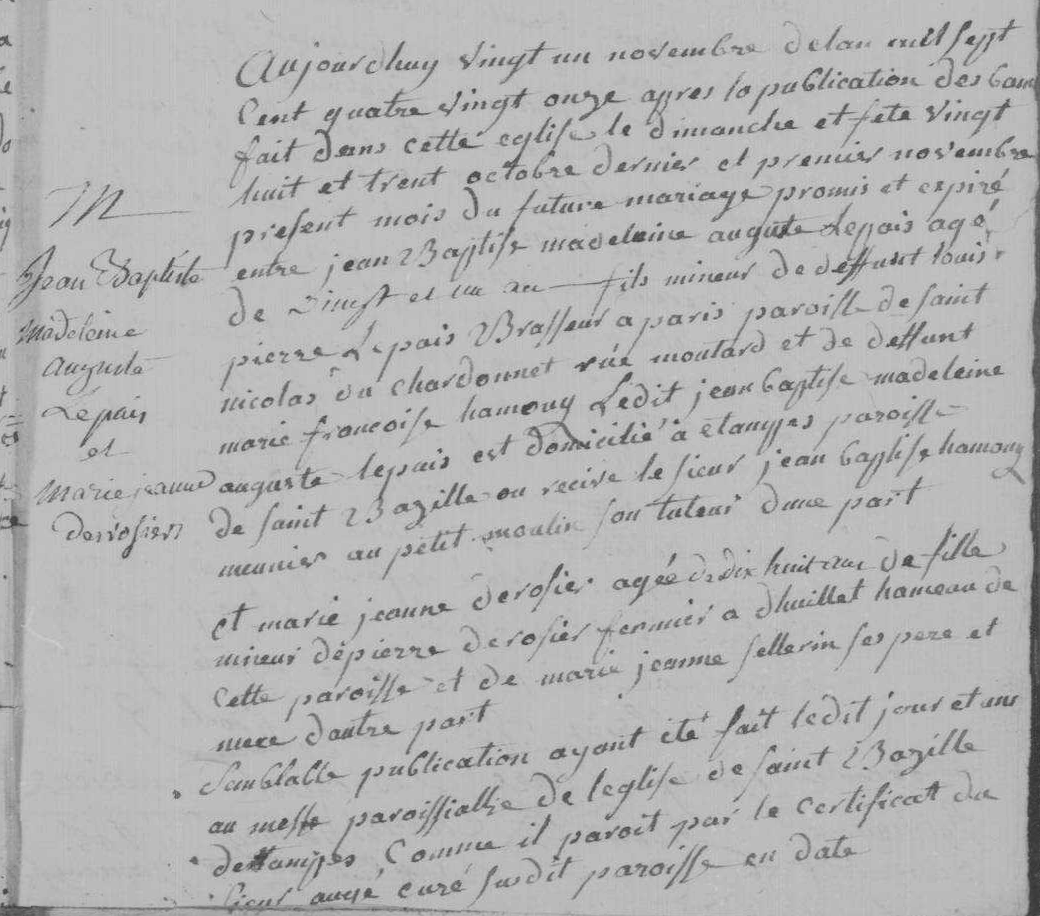 M
Jean Baptiste
Madeleine
auguste
Lepais
et
Marie jeanne
derosiers
Aujourdhuy vingt un novembre delan mil sept
Cent quatre vingt onze apres la publication des bans
fait dans cette eglise le dimanche et fete vingt
huit et trent octobre dernier et premier novembre
present mois du future mariage promis et expiré
entre jean Baptise madeleine auguste Lepais agé
de vingt et un an fils mineur de deffunt louis
pierre Lepais Brasseur a paris paroisse de saint
nicolas du chardonnet rüe moutard et de deffunt
marie francoise hamouy Ledit jean baptise madeleine
auguste lepais est domicilié a etampes paroisse
de saint Bazille ou recive le sieur jean baptise hamouy
meunier au petit moulin son tuteur dune part
et marie jeanne derosier agée de dix huit ans de fille
mineur depierre derosier fermier a dhuillet hameau de
cette paroisse et de marie jeanne sellerin ses pere et
mere dautre part
Semblable publication ayant eté fait ledit jour et
au messe paroissialle de leglise de saint Bazille
detampes Comme il paroit par le certificat du
sieur curé susdit paroisse en date